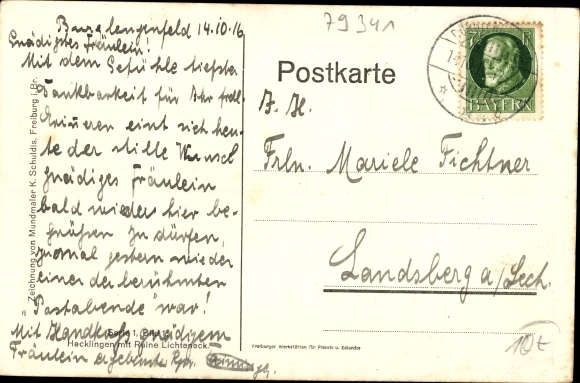 79341
Burglengenfeld 14.10.16
Gnädigstes Fräulein!
Mit dem Gefühle tiefster
Dankbarkeit für Ihr frdl.
Erinneren eint sich heu-
te der stille Wunsch
gnädiges Fräulein
bald wieder hier be-
grüßen zu dürfen,
zumal gestern wieder
einer der berühmten
"Postabende" war!
Mit Handkuß gnädigem
Fräulein ergebenster
Zeichnung von Mundmaler K. Schuldis, Freiburg i. Br.
Serie 1, Bild
Hecklingen mit Ruine Lichteneck.
Postkarte
BAYERN
Frln. Mariele Fichtner
Landsberg a/Lech.
Freiburger Werkstätten für Plakate u. Kalender
10t